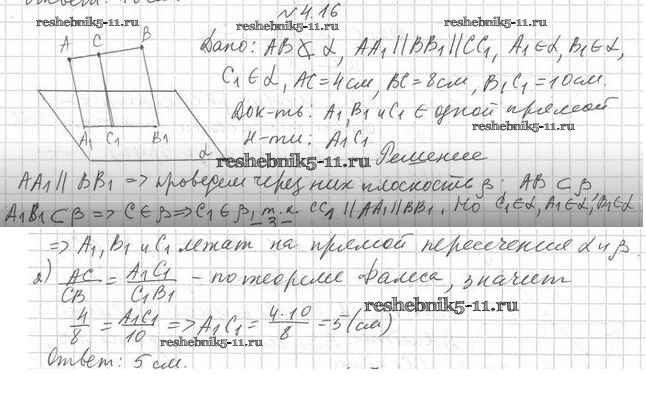 №4.16
reshebnik5-11.ru
A C B
Дано: AB ⊄ α, AA₁ || BB₁ || CC₁, A₁∈α, B₁∈α,
C₁∈α, AC=4см, BC=8см, B₁C₁=10см.
reshebnik5-11.ru
Док-ть: A₁, B₁ и C₁ ∈ одной прямой
reshebnik5-11.ru
Н-ти: A₁C₁
A₁ C₁ B₁ α
reshebnik5-11.ru Решение
AA₁ || BB₁ => проведем через них плоскость β; AB ⊂ β,
A₁B₁ ⊂ β => C∈β => C₁∈β, т.к. CC₁ || AA₁ || BB₁. Но C₁∈α, A₁∈α, B₁∈α
=> A₁, B₁ и C₁ лежат на прямой пересечения α и β.
2) AC/CB = A₁C₁/C₁B₁ – по теореме Фалеса, значит
reshebnik5-11.ru
4/8 = A₁C₁/10 => A₁C₁ = 4·10/8 = 5(см)
reshebnik5-11.ru
Ответ: 5 см.